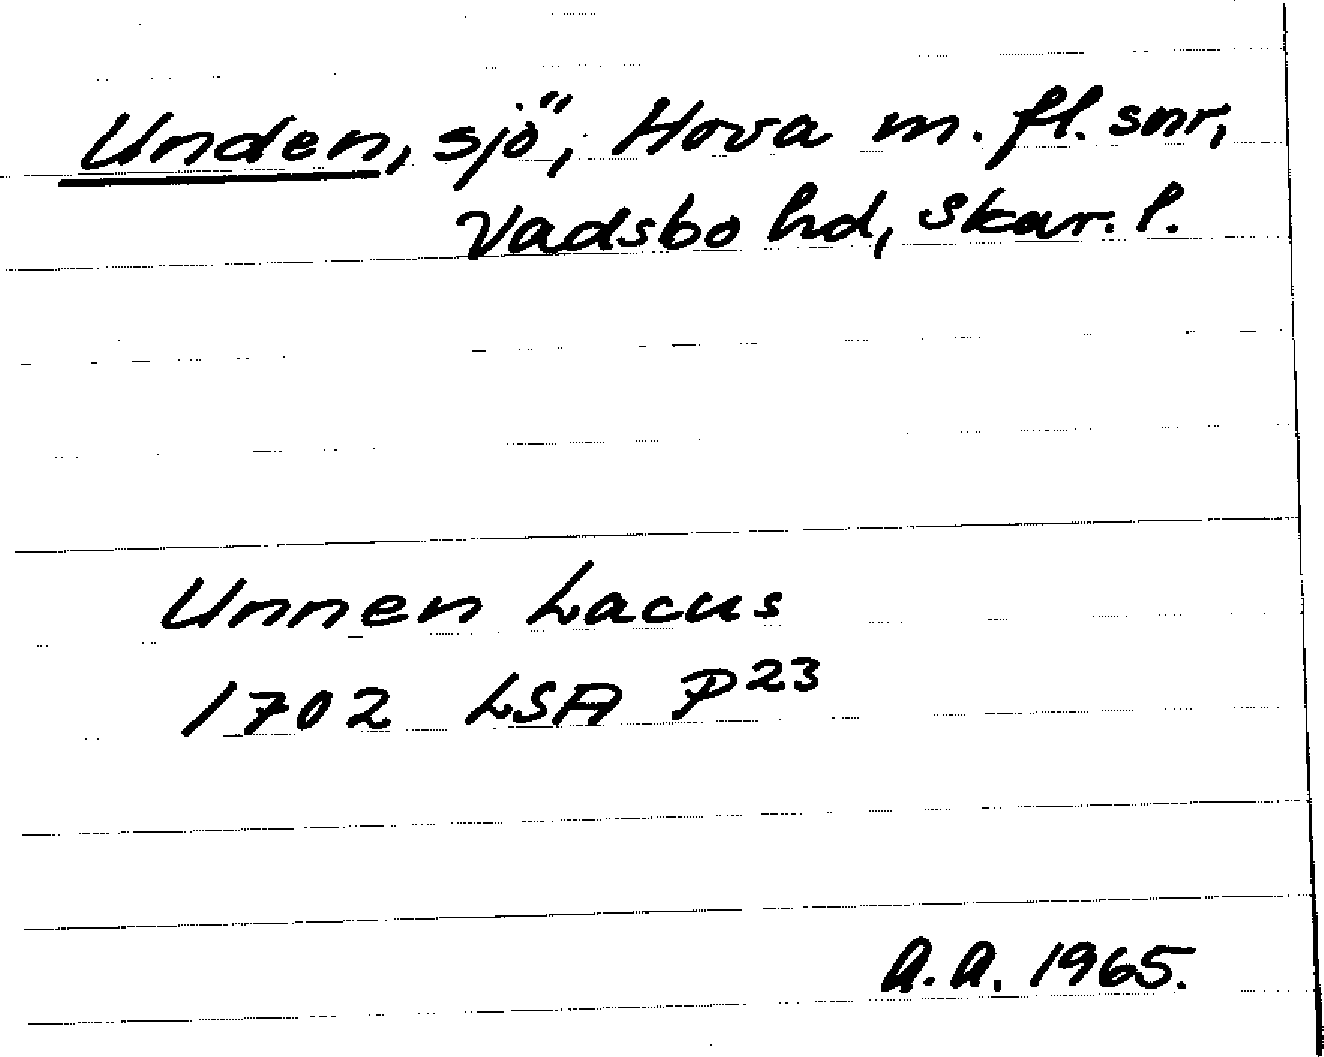 Unden, sjö, Hova m. fl. snr,
Vadsbo hd, Skar. l.
Unnen Lacus
1702 LSA P23
A.A. 1965.